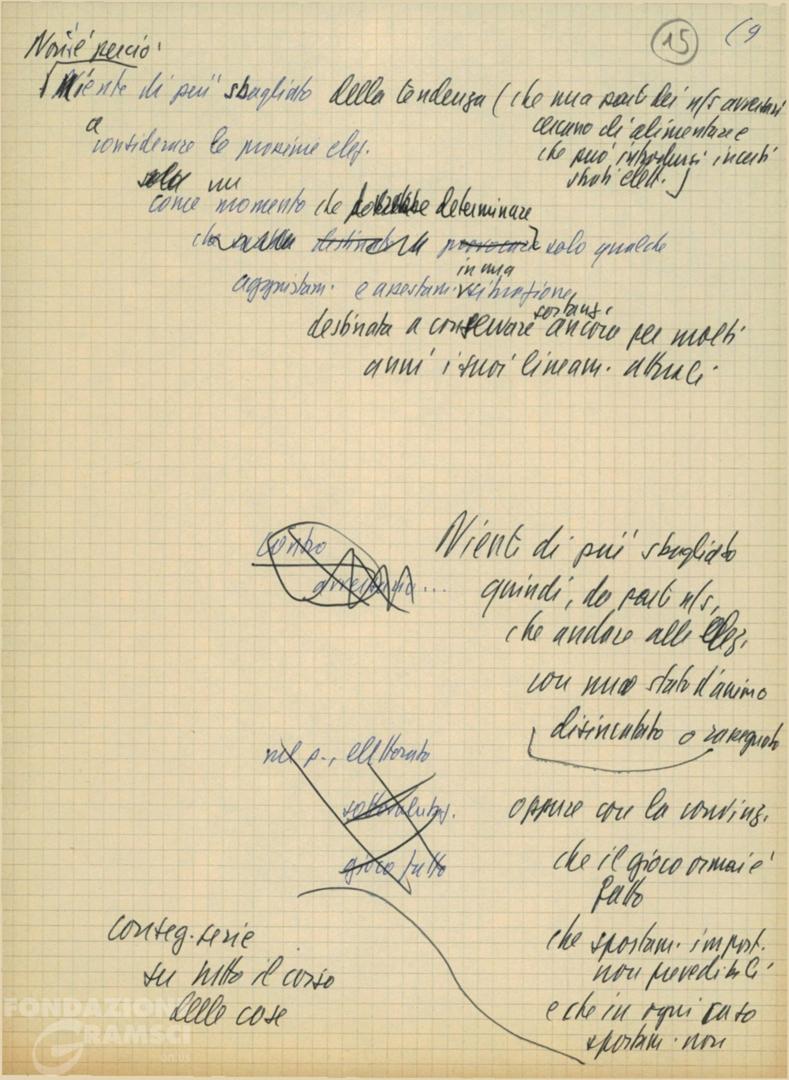 15
(9
Non è perciò
Niente di più sbagliato della tendenza (che una part dei n/s avversari
cercano di alimentare e
che può introdursi in certi
strati elett.)
a
considerare le prossime elez.
solo un
come momento che potrebbe determinare
provocare solo qualche
aggiustam. e assestam. in una situazione
destinata a conservare sostanz. ancora per molti
anni i suoi lineam. attuali.
contro
avversario...
Nient di più sbagliato
quindi, da part n/s,
che andare alle elez.
con uno stato d'animo
disincantato o rassegnato
nel p., elettorato
sottovalutaz.
gioco fatto
oppure con la convinz.
che il gioco ormai è
fatto
che spostam. import.
non prevedibili
e che in ogni caso
spostam. non
conseg. serie
su tutto il corso
delle cose
FONDAZIONE
GRAMSCI